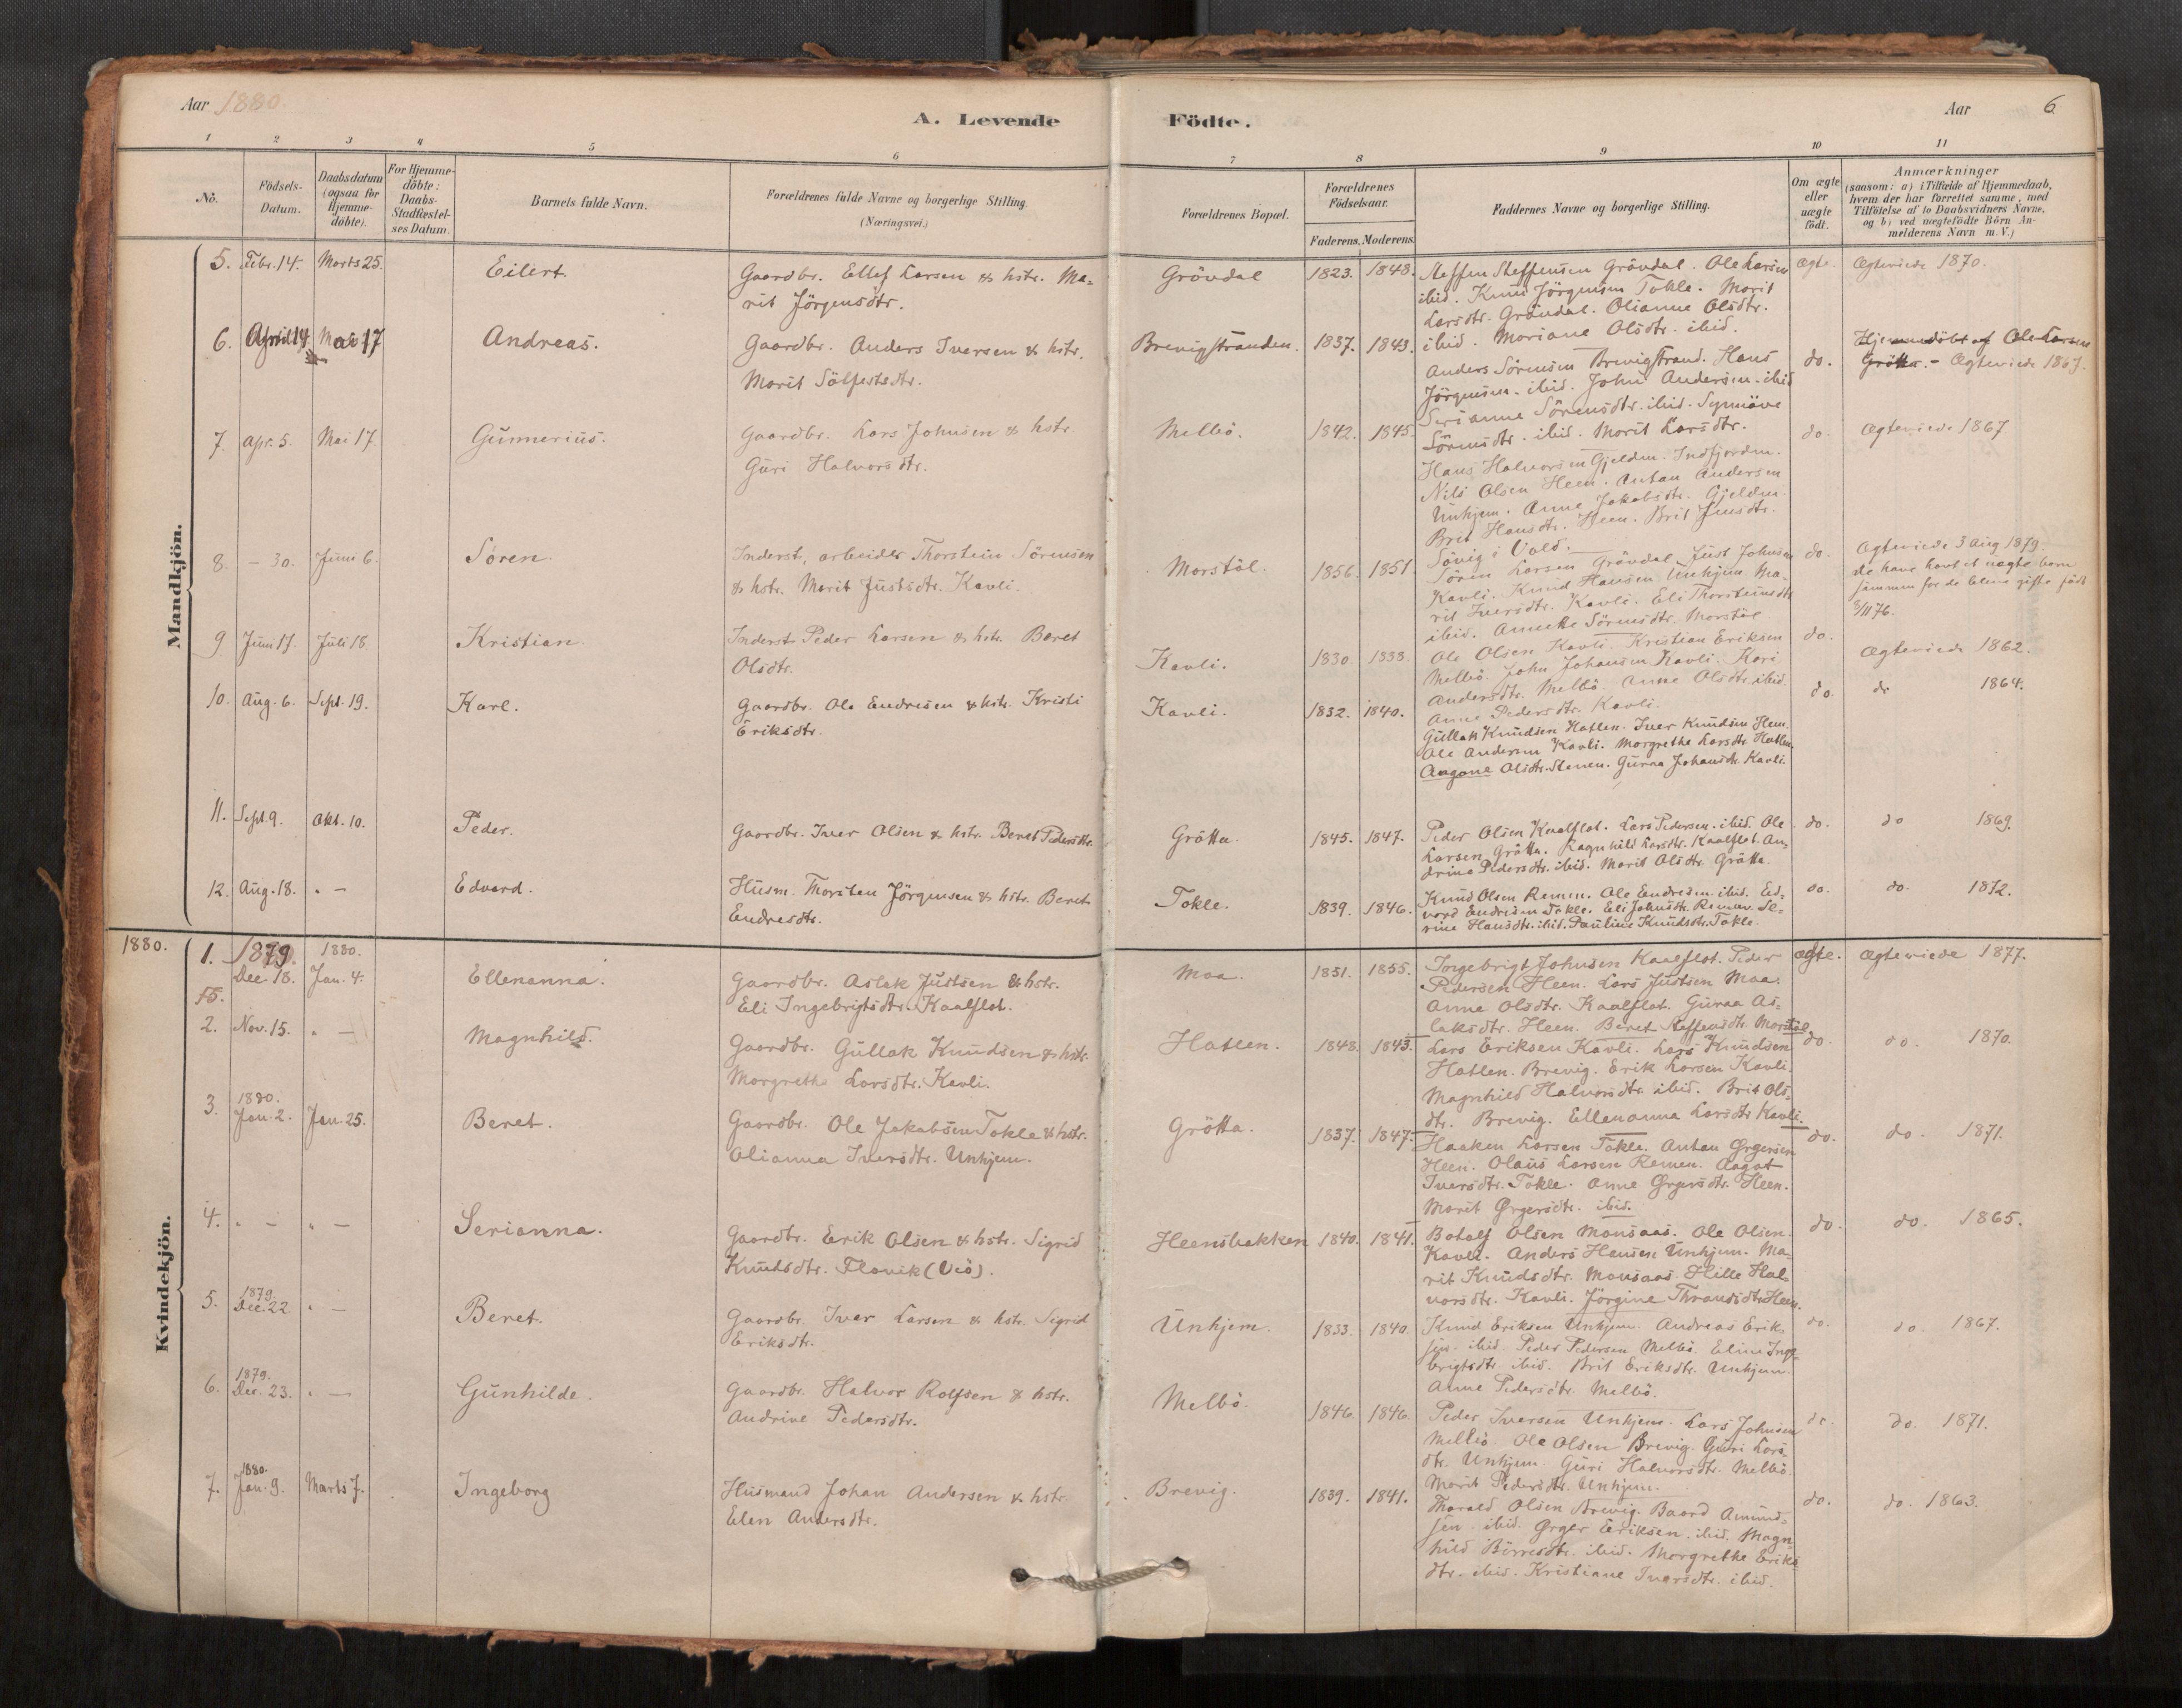 Aar 1880.
A. Levende
Födte.
Aar
6
1 2 3 4 5 6
7 8 9 10 11
No.
Födsels-
Datum.
Daabsdatum
(ogsaa for
Hjemme-
döbte).
For Hjemme-
döbte:
Daabs-
Stadfæstel-
ses Datum.
Barnets fulde Navn.
Forældrenes fulde Navne og borgerlige Stilling.
(Næringsvei.)
Forældrenes Bopæl.
Forældrenes
Födselsaar.
Faderens. Moderens.
Faddernes Navne og borgerlige Stilling.
Om ægte
eller
uægte
födt.
Anmærkninger
(saasom: a) i Tilfælde af Hjemmedaab,
hvem der har forrettet samme, med
Tilföielse af to Daabsvidners Navne,
og b) ved uægtefödte Börn An-
melderens Navn m. V.)
Mandkjön.
5. Febr. 14. Marts 25. Eilert
Gaardbr. Ellef Larsen & hstr. Ma-
rit Jörgensdtr.
Grövdal 1823. 1848.
Steffen Steffensen Grövdal. Ole Larsen
ibid. Knud Jörgensen Tokle. Marit
Larsdtr. Grövdal. Olianne Olsdtr.
ibid. Mariane Olsdtr. ibid.
ægte. Ægteviede 1870.
6. April 14. Mai 17 Andreas.
Gaardbr. Anders Iversen & hstr.
Marit Sölfestsdtr.
Brevigstranden. 1837. 1843.
Anders Sörensen Brevigstrand. Hans
Jörgensen ibid. John Andersen ibid
Serianne Sörensdtr. ibid. Synnöve
Sörensdtr. ibid. Marit Larsdtr.
do.
Hjemmedöbt af Ole Larsen
Grötta. - Ægteviede 1867.
7. Apr. 5. Mai 17. Gunnerius.
Gaardbr. Lars Johnsen & hstr.
Guri Halvorsdtr.
Melbö. 1842. 1845.
Hans Halvorsen Gjeldm. Indfjorden.
Nils Olsen Heen. Antan Andersen
Unhjem. Anne Jakobsdtr. Gjeldm.
Brit Hansdtr. Heen. Brit Jensdtr.
Sövig i Vold.
do. Ægteviede 1867
8. - 30. Juni 6. Sören.
Inderst, arbeider Thorstein Sörensen
& hstr. Marit Justsdtr. Kavli.
Morstöl. 1856. 1851.
Sören Larsen Grövdal. Just Johnsen
Kavli. Knud Hansen Unhjem. Ma-
rit Iversdtr. Kavli. Eli Thorsteinsdtr
ibid. Anneke Sörensdtr. Morstöl
do.
Ægteviede 3 Aug 1879.
De have havt et uægte barn
sammen før de bleve gifte født
3/11 76.
9. Juni 17. Juli 18. Kristian.
Inderst Peder Larsen & hstr. Beret
Olsdtr.
Kavli. 1830. 1838.
Ole Olsen Kavli. Kristian Eriksen
Melbö. John Johansen Kavli. Kari
Andersdtr. Melbö. Anne Olsdtr. ibid.
Anne Pedersdtr. Kavli.
do. Ægteviede 1862.
10. Aug. 6. Sept. 19. Karl.
Gaardbr. Ole Endresen & hstr. Kristi
Eriksdtr.
Kavli. 1832. 1840.
Gullak Knudsen Hatlen. Iver Knudsen Heen.
Ole Andersen Kavli. Margrethe Larsdtr. Hatlen.
Aagane Olsdtr. Stenen. Guraa Johansdtr. Kavli.
do. do 1864.
11. Sept. 9. Okt. 10. Peder.
Gaardbr. Iver Olsen & hstr. Beret Pedersdtr.
Grötta. 1845. 1847.
Peder Olsen Kaalflot. Lars Pedersen. ibid. Ole
Larsen Grötta. Ragnhild Larsdtr. Kaalflot. An-
drine Pedersdtr. ibid. Marit Olsdtr. Grötta.
do. do 1869.
12. Aug. 18. " - Edvard.
Husm. Thorsten Jörgensen & hstr. Beret
Endresdtr.
Tokle. 1839. 1846.
Knud Olsen Remm. Ole Endresen. ibid. Ed-
vard Endresen Tokle. Eli Johnsdtr. Remm. Se-
rine Hansdtr. ibid. Pauline Knudsdtr. Tokle.
do. do. 1872.
Kvindekjön.
1880.
1. 1879. 1880.
Dec. 18. Jan. 4. Ellenanna.
Gaardbr. Aslak Justsen & hstr.
Eli Ingebrigtsdtr. Kaalflot.
Moa. 1851. 1855.
Ingebrigt Johnsen Kaalflot. Peder
Pedersen Heen. Lars Justsen Moa.
Anne Olsdtr. Kaalflot. Guraa As-
laksdtr. Heen. Beret Steffensdtr. Morstöl
ægte. Ægteviede 1877.
15.
2. Nov. 15. " - Magnhild.
Gaardbr. Gullak Knudsen & hstr.
Margrethe Larsdtr. Kavli.
Hatlen. 1848. 1843.
Lars Eriksen Kavli. Lars Knudsen
Hatlen. Brevig. Erik Larsen Kavli.
Magnhild Halvorsdtr. ibid. Brit Ols-
dtr. Brevig. Ellenanna Larsdtr. Kavli.
do. do. 1870.
3. 1880.
Jan. 2. Jan. 25. Beret.
Gaardbr. Ole Jakobsen Tokle & hstr.
Olianna Iversdtr. Unhjem.
Grötta. 1837. 1847.
Haaken Larsen Tokle. Antan Ørgersen
Heen. Olaus Larsen Remen. Aagot
Iversdtr. Tokle. Anne Ørgersdtr. Heen.
Marit Ørgersdtr. ibid.
do. do. 1871.
4. " - " - Serianna.
Gaardbr. Erik Olsen & hstr. Sigrid
Knudsdtr. Flovik (Veö).
Heensbakken 1840. 1841.
Botolf Olsen Monsaas. Ole Olsen.
Kavli. Anders Hansen Unhjem. Ma-
rit Knudsdtr. Monsaas. Hille Hal-
vorsdtr. Kavli. Jörgine Throndsdtr. Heen.
do. do. 1865.
5. 1879.
Dec. 22 " - Beret.
Gaardbr. Iver Larsen & hstr. Sigrid
Eriksdtr.
Unhjem. 1833. 1840.
Knud Eriksen Unhjem. Andreas Erik-
sen ibid. Peder Pedersen Melbö. Eline Inge-
brigtsdtr. ibid. Brit Eriksdtr. Unhjem.
Anne Pedersdtr. Melbö.
do. do. 1867.
6. 1879.
Dec. 23. " - Gunhilde.
Gaardbr. Halvor Rolfsen & hstr.
Andrine Pedersdtr.
Melbö. 1846. 1846.
Peder Iversen Unhjem. Lars Johnsen
Melbö. Ole Olsen Brevig. Guri Lars-
dtr. Unhjem. Guri Halvorsdtr. Melbö.
Marit Pedersdtr. Unhjem.
do. do. 1871.
7. 1880.
Jan. 9. Marts 7. Ingeborg
Husmand Johan Andersen & hstr.
Elen Andersdtr.
Brevig. 1839. 1841.
Thorald Olsen Brevig. Baard Amund-
sen ibid. Ørger Eriksen. ibid. Magn-
hild Börresdtr. ibid. Margrethe Eriks-
dtr. ibid. Kristiane Iversdtr. ibid.
do. do. 1863.